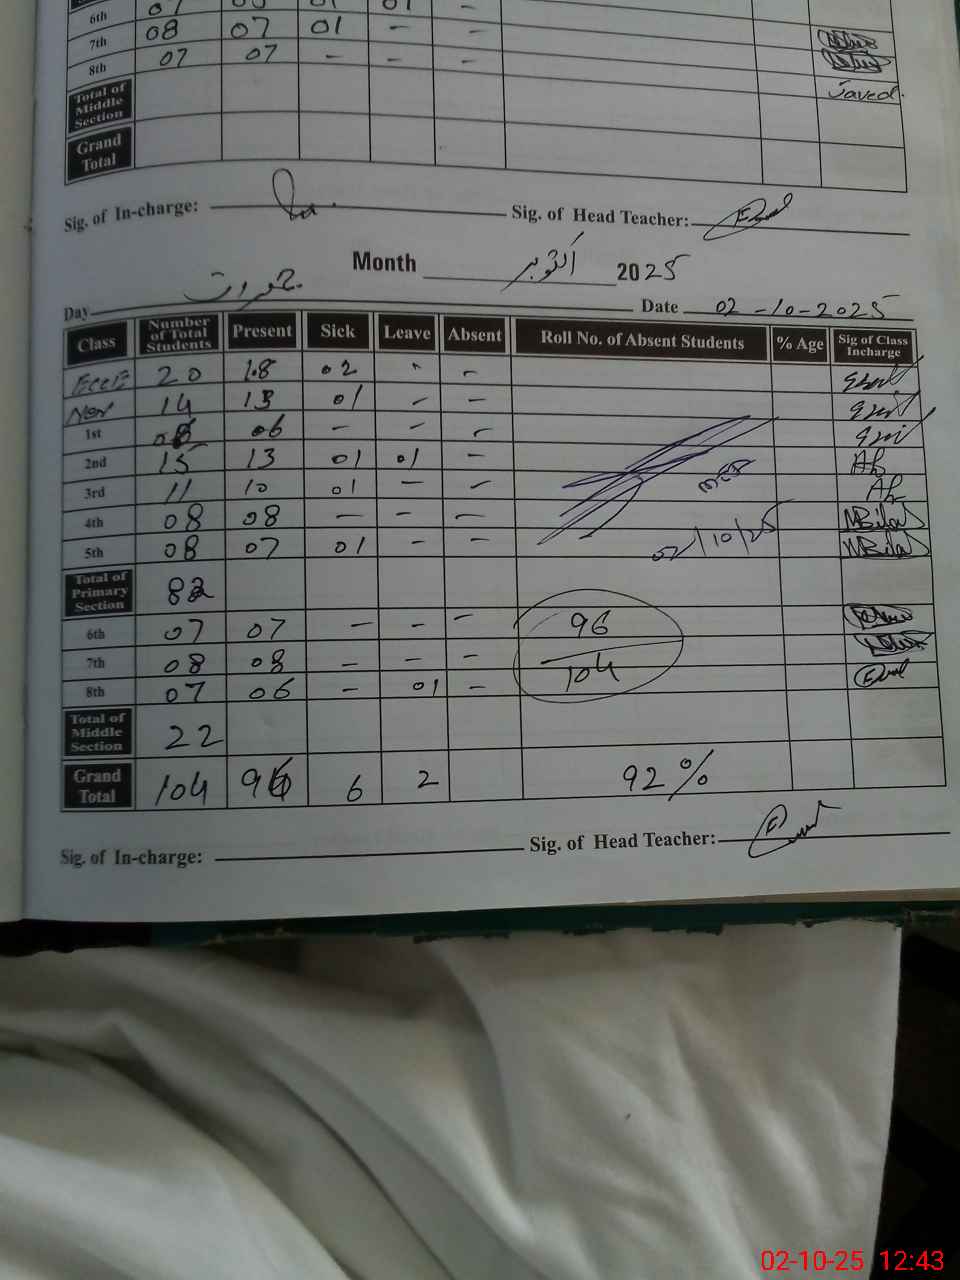 6th 07
7th 08 07 01 - -
8th 07 07 - - -
Total of Middle Section Javed.
Grand Total
Sig. of In-charge: Sig. of Head Teacher:
Month اکتوبر 2025
Day جمعرات Date 02-10-2025
Class Number of Total Students Present Sick Leave Absent Roll No. of Absent Students % Age Sig of Class Incharge
20 18 02 - -
14 13 01 - -
1st 06 - - -
2nd 15 13 01 01 -
3rd 11 10 01 - -
4th 08 08 - - - MBilal
5th 08 07 01 - - 02/10/25 MBilal
Total of Primary Section 82
6th 07 07 - - - 96
7th 08 08 - - - 104
8th 07 06 - 01 -
Total of Middle Section 22
Grand Total 104 96 6 2 92%
Sig. of In-charge: Sig. of Head Teacher:
02-10-25 12:43